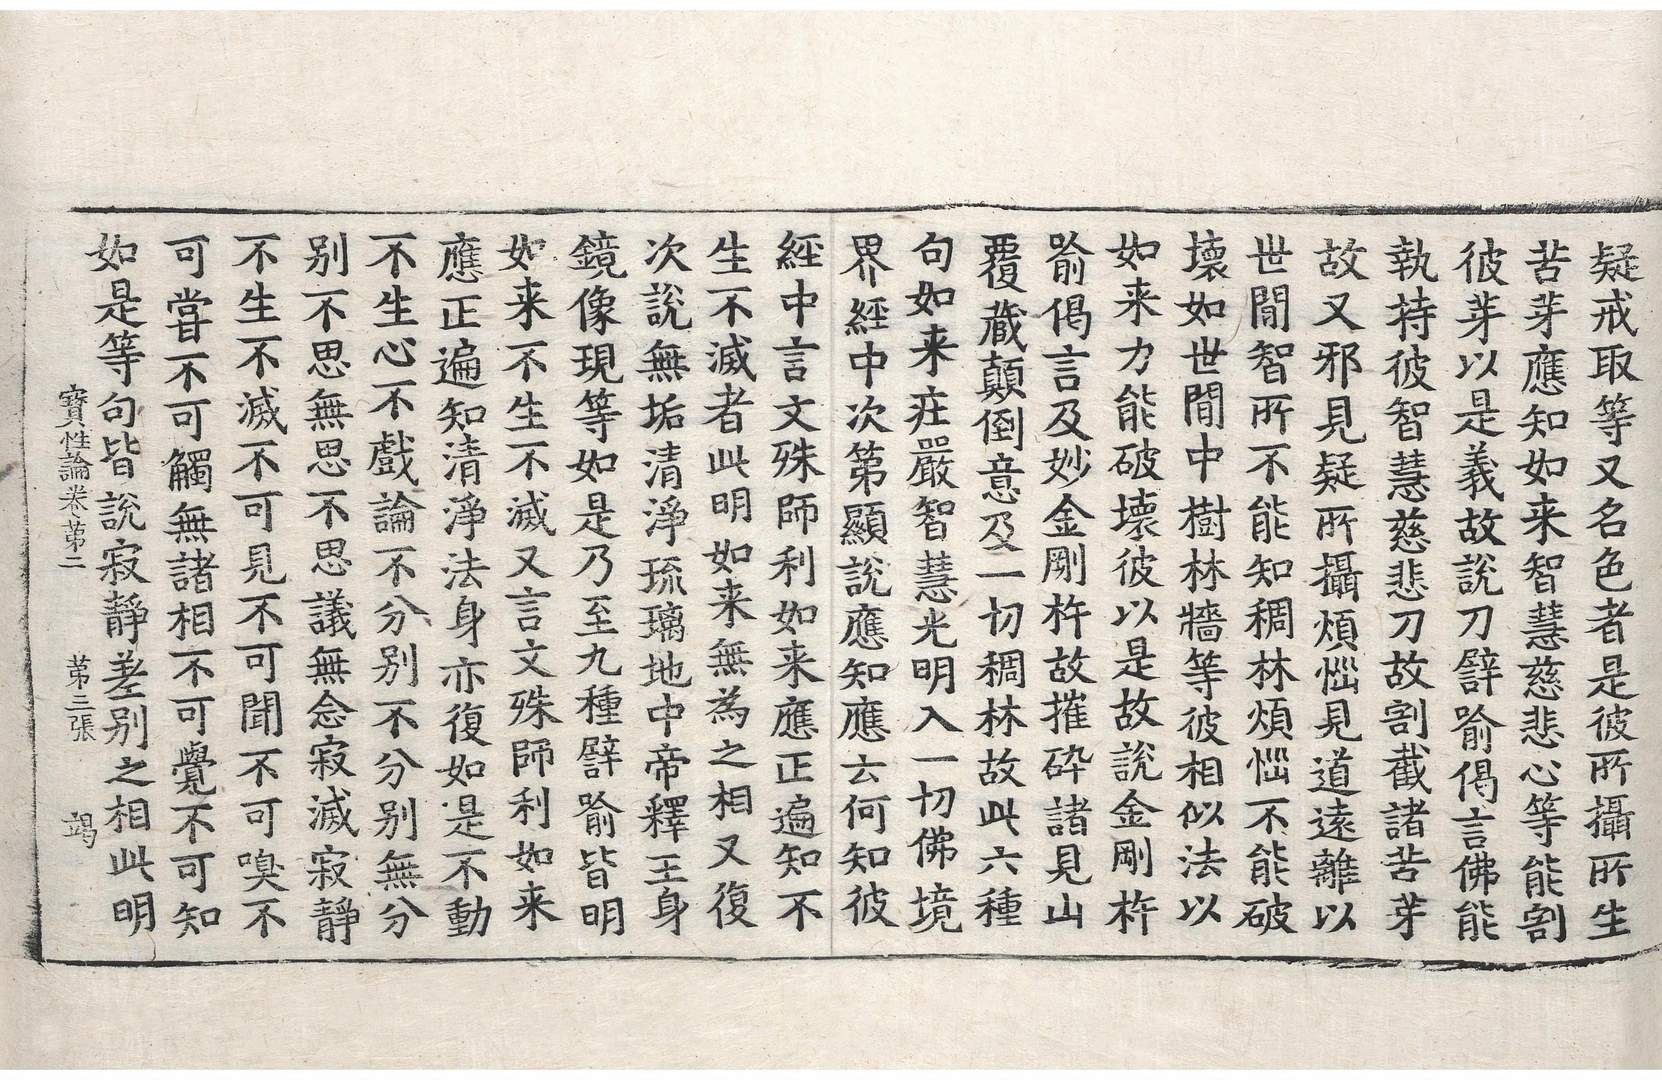 疑戒取等又名色者是彼所攝所生
苦芽應知如来智慧慈悲心等能割
彼芽以是義故說刀譬喻偈言佛能
執持彼智慧慈悲刀故割截諸苦芽
故又邪見疑所攝煩惱見道遠離以
世閒智所不能知稠林煩惱不能破
壞如世閒中樹林牆等彼相似法以
如来力能破壞彼以是故說金剛杵
喻偈言及妙金剛杵故摧碎諸見山
覆藏顛倒意及一切稠林故此六種
句如来莊嚴智慧光明入一切佛境
界經中次第顯說應知應云何知彼
經中言文殊師利如来應正遍知不
生不滅者此明如来無為之相又復
次說無垢清淨琉璃地中帝釋王身
鏡像現等如是乃至九種譬喻皆明
如来不生不滅又言文殊師利如来
應正遍知清淨法身亦復如是不動
不生心不戲論不分别不分别無分
别不思無思不思議無念寂滅寂靜
不生不滅不可見不可聞不可嗅不
可嘗不可觸無諸相不可覺不可知
如是等句皆說寂靜差别之相此明
寶性論卷第二　第三張　竭